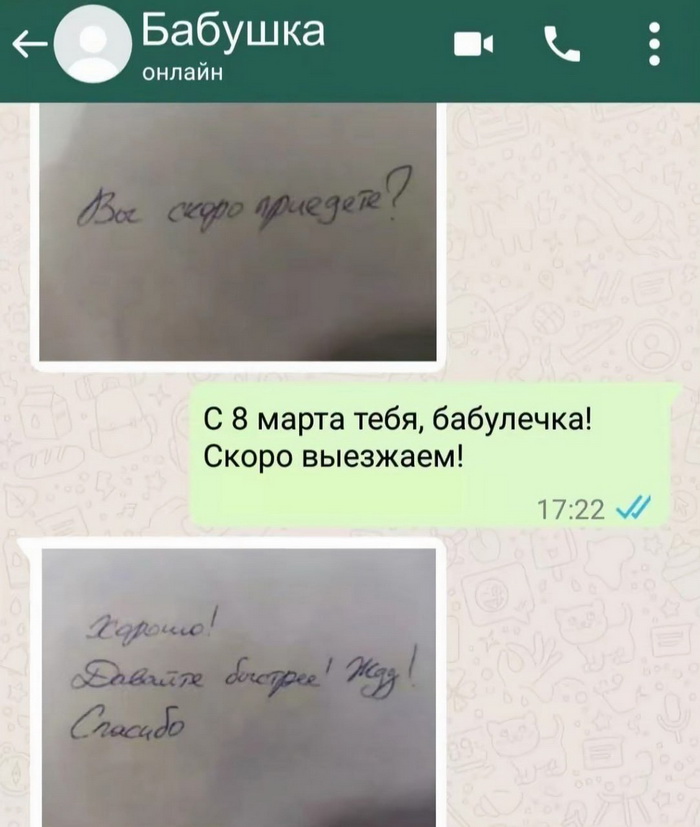 Бабушка
онлайн
Вы скоро приедете?
С 8 марта тебя, бабулечка!
Скоро выезжаем!
17:22
Хорошо!
Давайте быстрее! Жду!
Спасибо